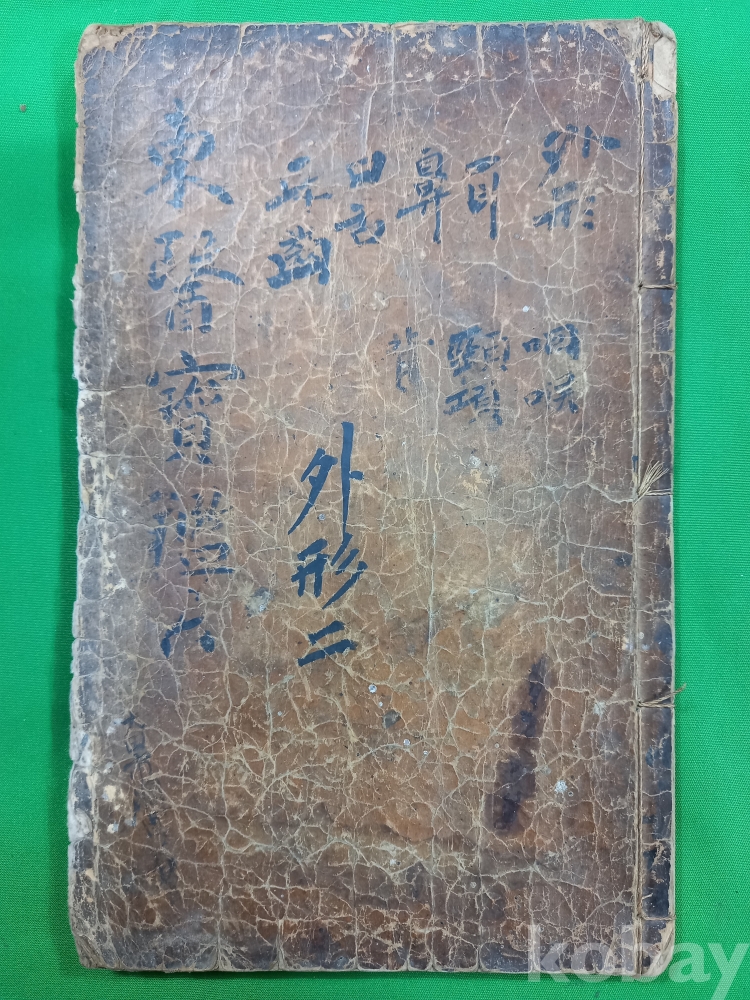 外形
耳
鼻
口舌
牙齒
咽喉
頸項
背
外形二
東醫寶鑑 六
kobay